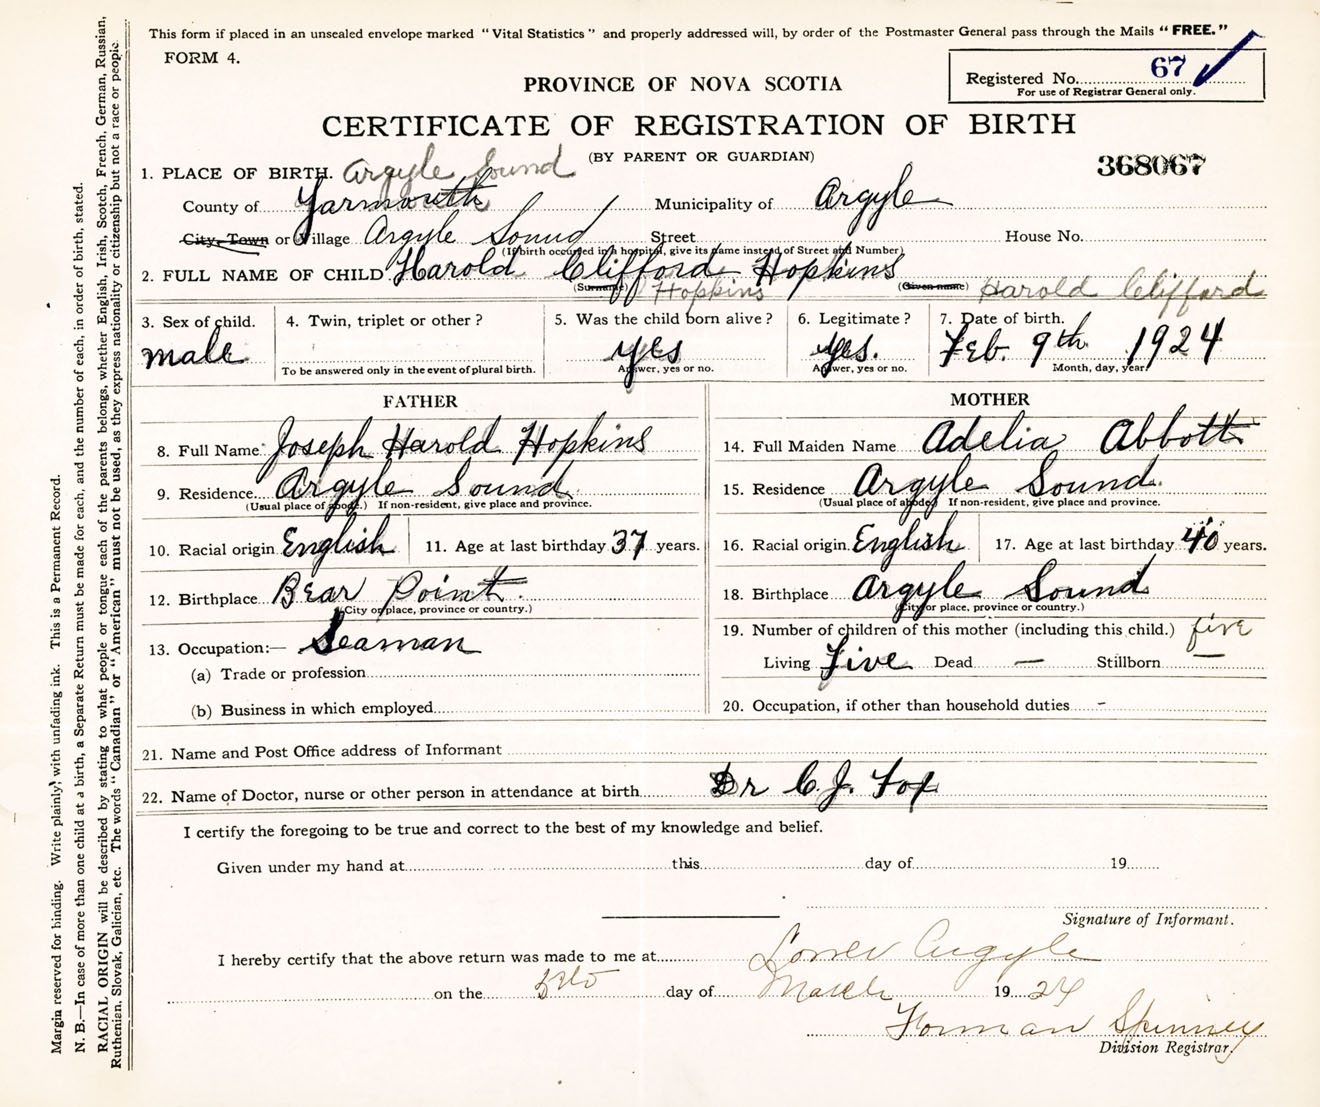 This form if placed in an unsealed envelope marked "Vital Statistics" and properly addressed will, by order of the Postmaster General pass through the Mails "FREE."
FORM 4.
Registered No. 67
For use of Registrar General only.
PROVINCE OF NOVA SCOTIA
CERTIFICATE OF REGISTRATION OF BIRTH
(BY PARENT OR GUARDIAN)
368067
1. PLACE OF BIRTH. Argyle Sound
County of Yarmouth Municipality of Argyle
City, Town or Village Argyle Sound Street House No.
(If birth occurred in a hospital, give its name instead of Street and Number)
2. FULL NAME OF CHILD Harold Clifford Hopkins
(Surname) Hopkins (Given name) Harold Clifford
3. Sex of child. 4. Twin, triplet or other? 5. Was the child born alive? 6. Legitimate? 7. Date of birth.
male yes yes. Feb. 9th 1924
To be answered only in the event of plural birth. Answer, yes or no. Answer, yes or no. Month, day, year.
FATHER
8. Full Name Joseph Harold Hopkins
9. Residence Argyle Sound
(Usual place of abode.) If non-resident, give place and province.
10. Racial origin English 11. Age at last birthday 37 years.
12. Birthplace Bear Point.
(City or place, province or country.)
13. Occupation:— Seaman
(a) Trade or profession
(b) Business in which employed
MOTHER
14. Full Maiden Name Adelia Abbott
15. Residence Argyle Sound.
(Usual place of abode) If non-resident, give place and province.
16. Racial origin English 17. Age at last birthday 40 years.
18. Birthplace Argyle Sound
(City or place, province or country.)
19. Number of children of this mother (including this child.) five
Living Five Dead — Stillborn —
20. Occupation, if other than household duties -
21. Name and Post Office address of Informant
22. Name of Doctor, nurse or other person in attendance at birth Dr C. J. Fox
I certify the foregoing to be true and correct to the best of my knowledge and belief.
Given under my hand at this day of 19
Signature of Informant.
I hereby certify that the above return was made to me at Lower Argyle
on the day of March 1924
Forman Spinney
Division Registrar.
Margin reserved for binding. Write plainly, with unfading ink. This is a Permanent Record.
N. B.—In case of more than one child at a birth, a Separate Return must be made for each, and the number of each, in order of birth, stated.
RACIAL ORIGIN will be described by stating to what people or tongue each of the parents belongs, whether English, Irish, Scotch, French, German, Russian,
Ruthenian, Slovak, Galician, etc. The words "Canadian" or "American" must not be used, as they express nationality or citizenship but not a race or people.